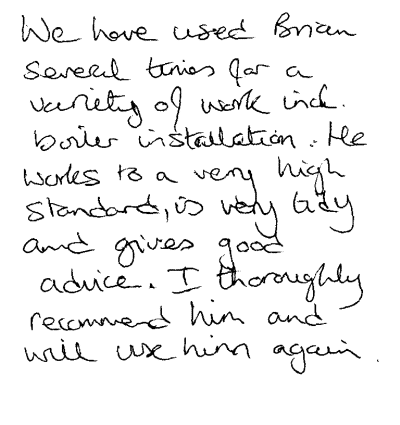 We have used Brian
several times for a
variety of work incl.
boiler installation. He
works to a very high
standard, is very tidy
and gives good
advice. I thoroughly
recommend him and
will use him again.